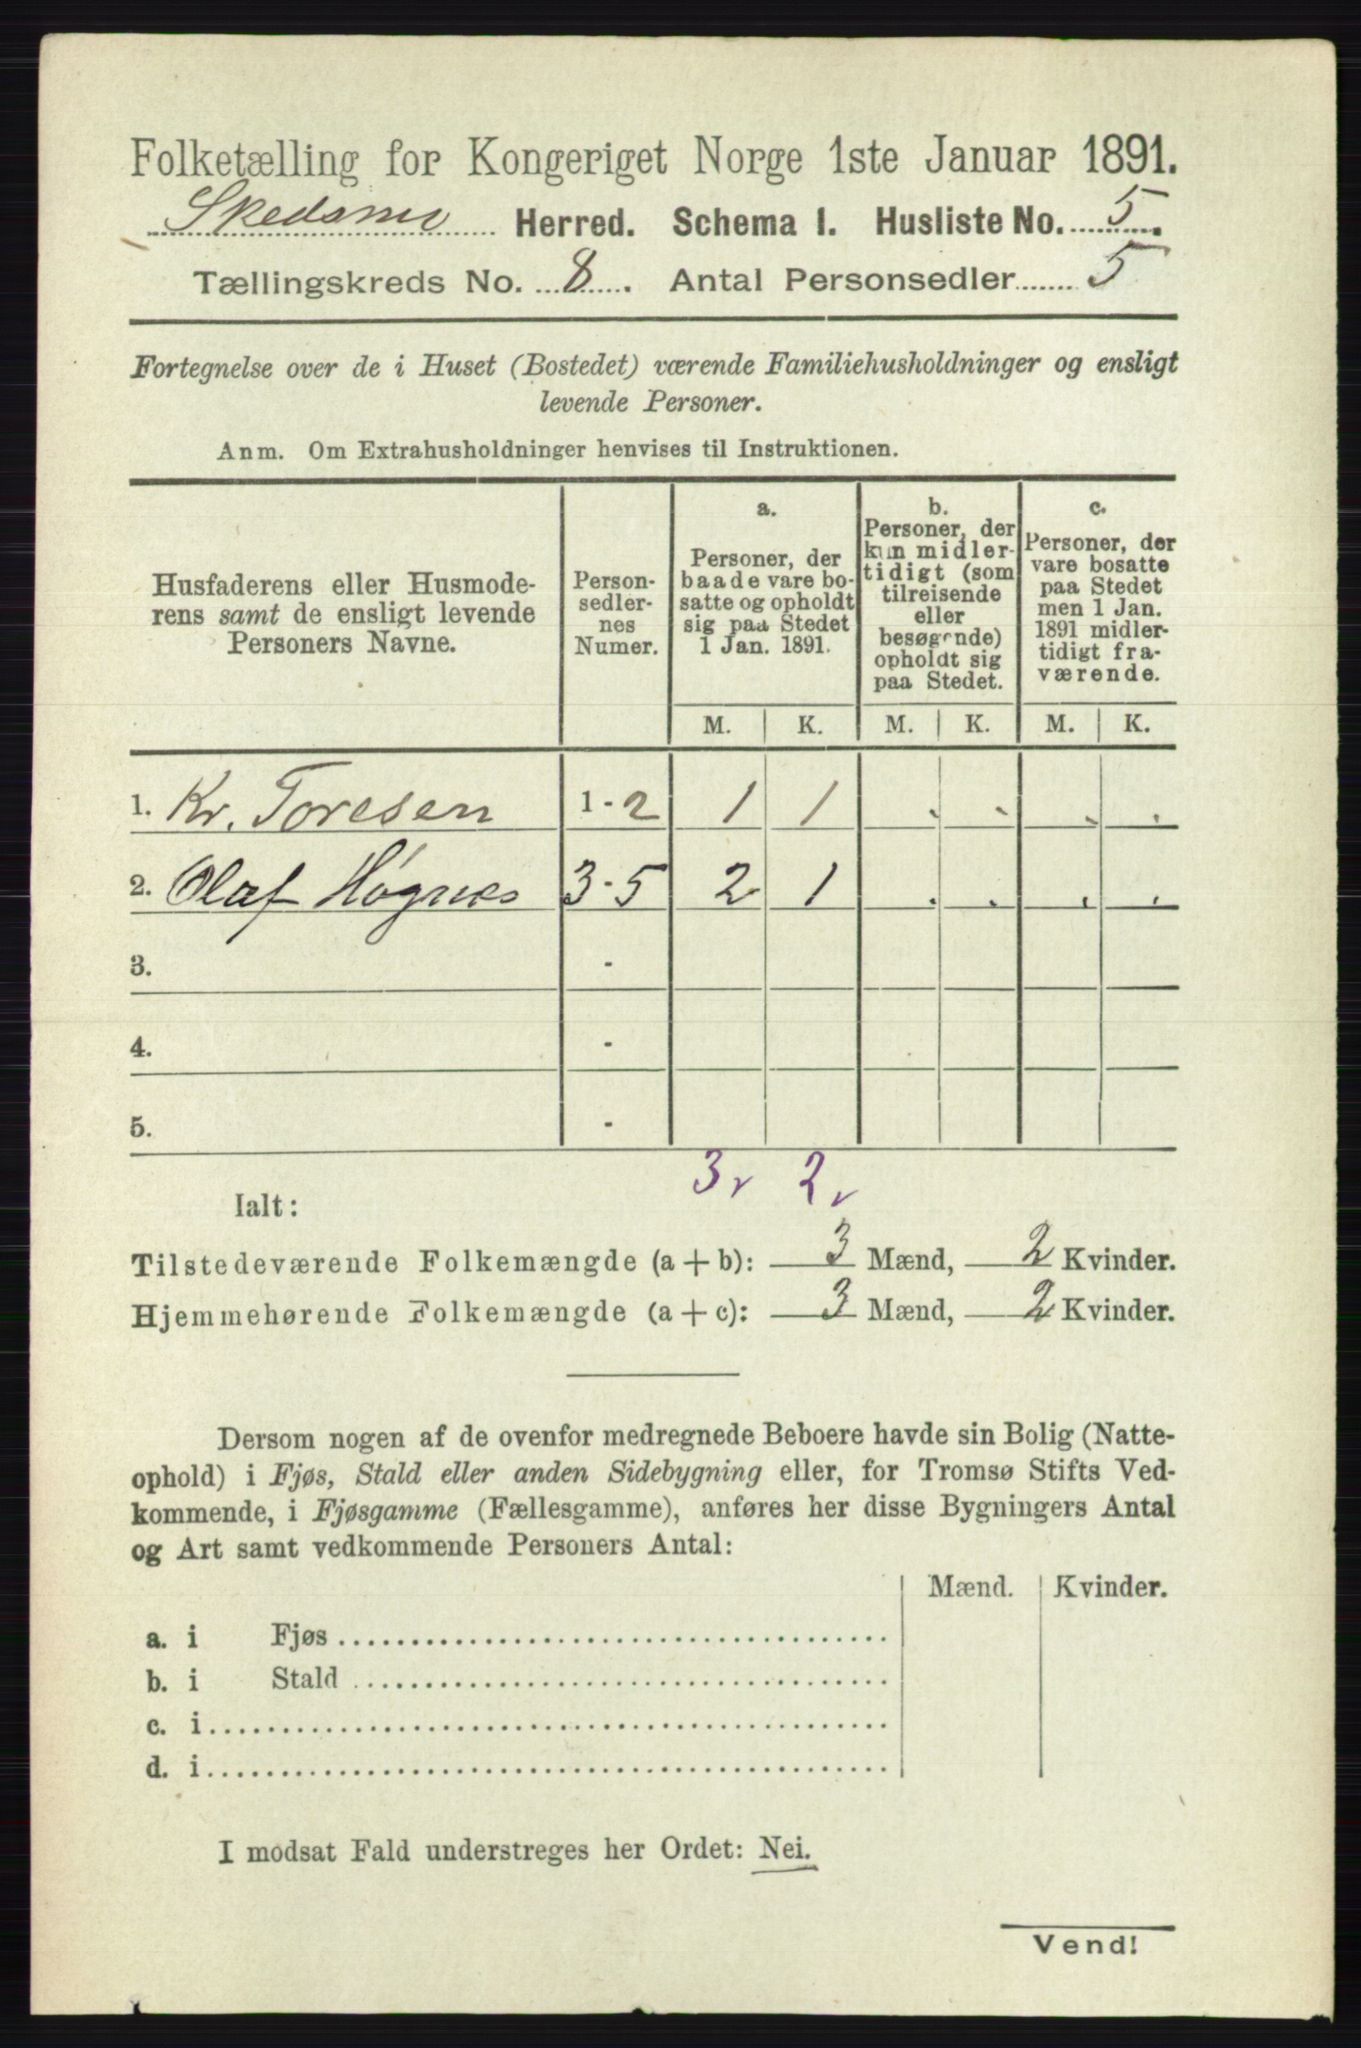 Folketælling for Kongeriget Norge 1ste Januar 1891.
Skedsmo Herred. Schema 1. Husliste No. 5.
Tællingskreds No. 8. Antal Personsedler 5
Fortegnelse over de i Huset (Bostedet) værende Familiehusholdninger og ensligt
levende Personer.
Anm. Om Extrahusholdninger henvises til Instruktionen.
Husfaderens eller Husmode-
rens samt de ensligt levende
Personers Navne.
Person-
sedler-
nes
Numer.
a.
Personer, der
baade vare bo-
satte og opholdt
sig paa Stedet
1 Jan. 1891.
b.
Personer, der
kun midler-
tidigt (som
tilreisende
eller
besøgende)
opholdt sig
paa Stedet.
c.
Personer, der
vare bosatte
paa Stedet
men 1 Jan.
1891 midler-
tidigt fra-
værende.
M. K. M. K. M. K.
1. Kr. Toresen 1-2 1 1 . . . .
2. Olaf Høgnes 3-5 2 1 . . . .
3. -
4. -
5. -
3 2
Ialt:
Tilstedeværende Folkemængde (a + b): 3 Mænd, 2 Kvinder.
Hjemmehørende Folkemængde (a + c): 3 Mænd, 2 Kvinder.
Dersom nogen af de ovenfor medregnede Beboere havde sin Bolig (Natte-
ophold) i Fjøs, Stald eller anden Sidebygning eller, for Tromsø Stifts Ved-
kommende, i Fjøsgamme (Fællesgamme), anføres her disse Bygningers Antal
og Art samt vedkommende Personers Antal:
Mænd. Kvinder.
a. i Fjøs
b. i Stald
c. i
d. i
I modsat Fald understreges her Ordet: Nei.
Vend!